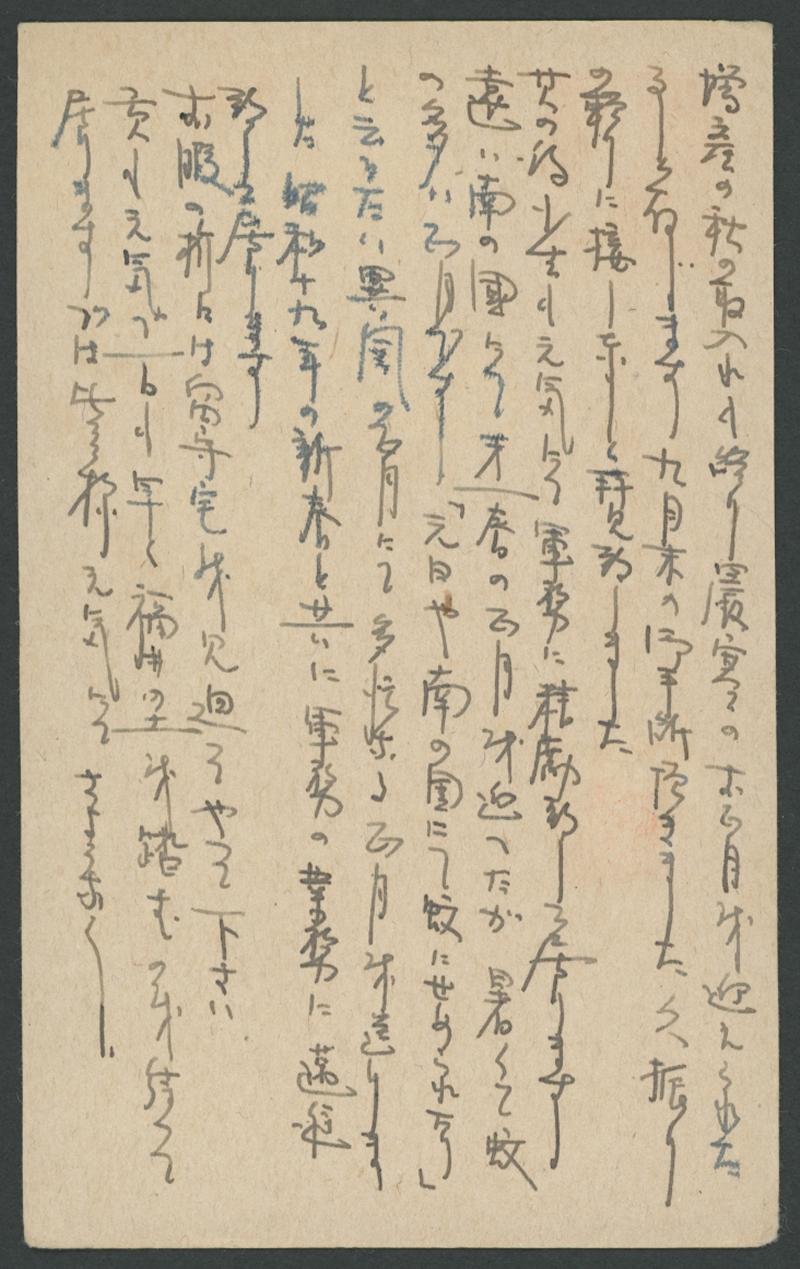 増産の秋の取入れも終り厳寒のお正月を迎えられた
る事と存じます 九月末の御手断頂きました 久振り
の頼りに接し楽しく拝見致しました
其の後小生も元気にて軍務に精励致して居ります
遠い南の国にて 青春の正月を迎へたが 暑くて蚊
の多い正月です 「元日や南の国にて蚊にせめられたり」
と云ふたい異国の正月にて 多忙なる正月を送りま
した 昭和十九年の新春と共に軍務の業務に邁進
致して居ります
お暇の折には留守宅を見廻つてやつて下さい
貢も元気で一日も早く福井の土を踏むのを待つて
居ります では皆々様も元気にて さようなら